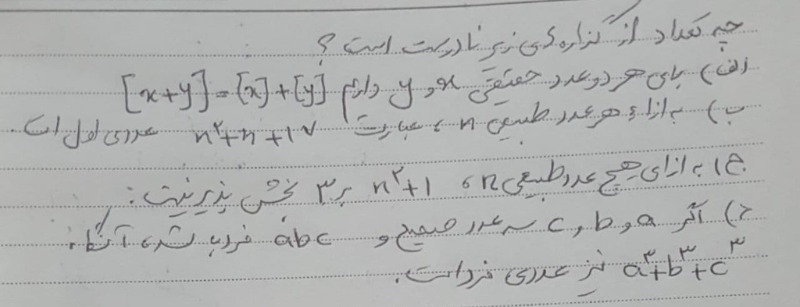 چه تعداد از گزاره‌های زیر نادرست است؟
الف) برای هر دو عدد حقیقی x و y داریم [x+y]=[x]+[y]
ب) به ازاء هر عدد طبیعی n، عبارت n²+n+17 عددی اول است.
ج) به ازای هیچ عدد طبیعی n، n²+1 بر ۳ بخش پذیر نیست:
د) اگر a و b و c سه عدد صحیح و abc فرد باشد، آنگاه
a³+b³+c³ نیز عددی فرد است.